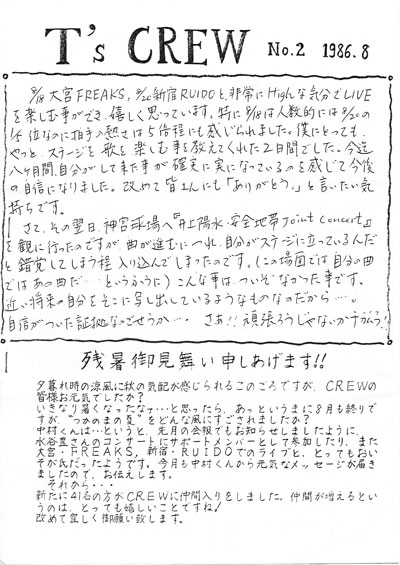 T's CREW No.2 1986.8
8/18 大宮FREAKS, 8/20新宿RUIDOと、非常にHighな気分でLIVE
を楽しむ事ができ、嬉しく思っています。特に8/18は人数的には8/20の
位なのに拍手の熱さは5倍程にも感じられました。僕にとっても、
やっと ステージを 歌を 楽しむ 事を教えてくれた2日間でした。今迄
八ヶ月間、自分がして来た事が 確実に実になっているのを感じて今後
の自信になりました。改めて皆さんにも「ありがとう。」と言いたい気
持ちです。
さて、その翌日、神宮球場へ『井上陽水・安全地帯Joint Concert』
を観に行ったのですが、曲が進むにつれ、自分がステージに立っているんだ
と錯覚してしまう程 入り込んでしまったのです。(この場面では自分の曲
ではあの曲だ…というふうに)こんな事は、ついぞなかった事です。
近い将来の自分をそこに写し出しているようなものなのだから…。
自信がついた証拠なのでせうか… さあ!!頑張ろうじゃないか
残暑御見舞い申しあげます!!
夕暮れ時の涼風に秋の気配が感じられるこのごろですが、CREWの
皆様お元気でしたか?
いきなり暑くなったなァ…と思ったら、あっというまに8月も終りで
すが"つかのまの夏"をどんな風にすごされましたか?
中村くんは…というと、先月の会報でもお知らせしましたように、
水谷豊さんのコンサートにサポートメンバーとして参加したり、また
大宮・FREAKS、新宿・RUIDOでのライブと、とってもおい
そが氏だったようです。今月も中村くんから元気なメッセージが届き
ましたので、お伝えします。
それから・・・
新たに41名の方がCREWに仲間入りをしました。仲間が増えるとい
うのは、とっても嬉しいことですね!
改めて宜しく御願い致します。